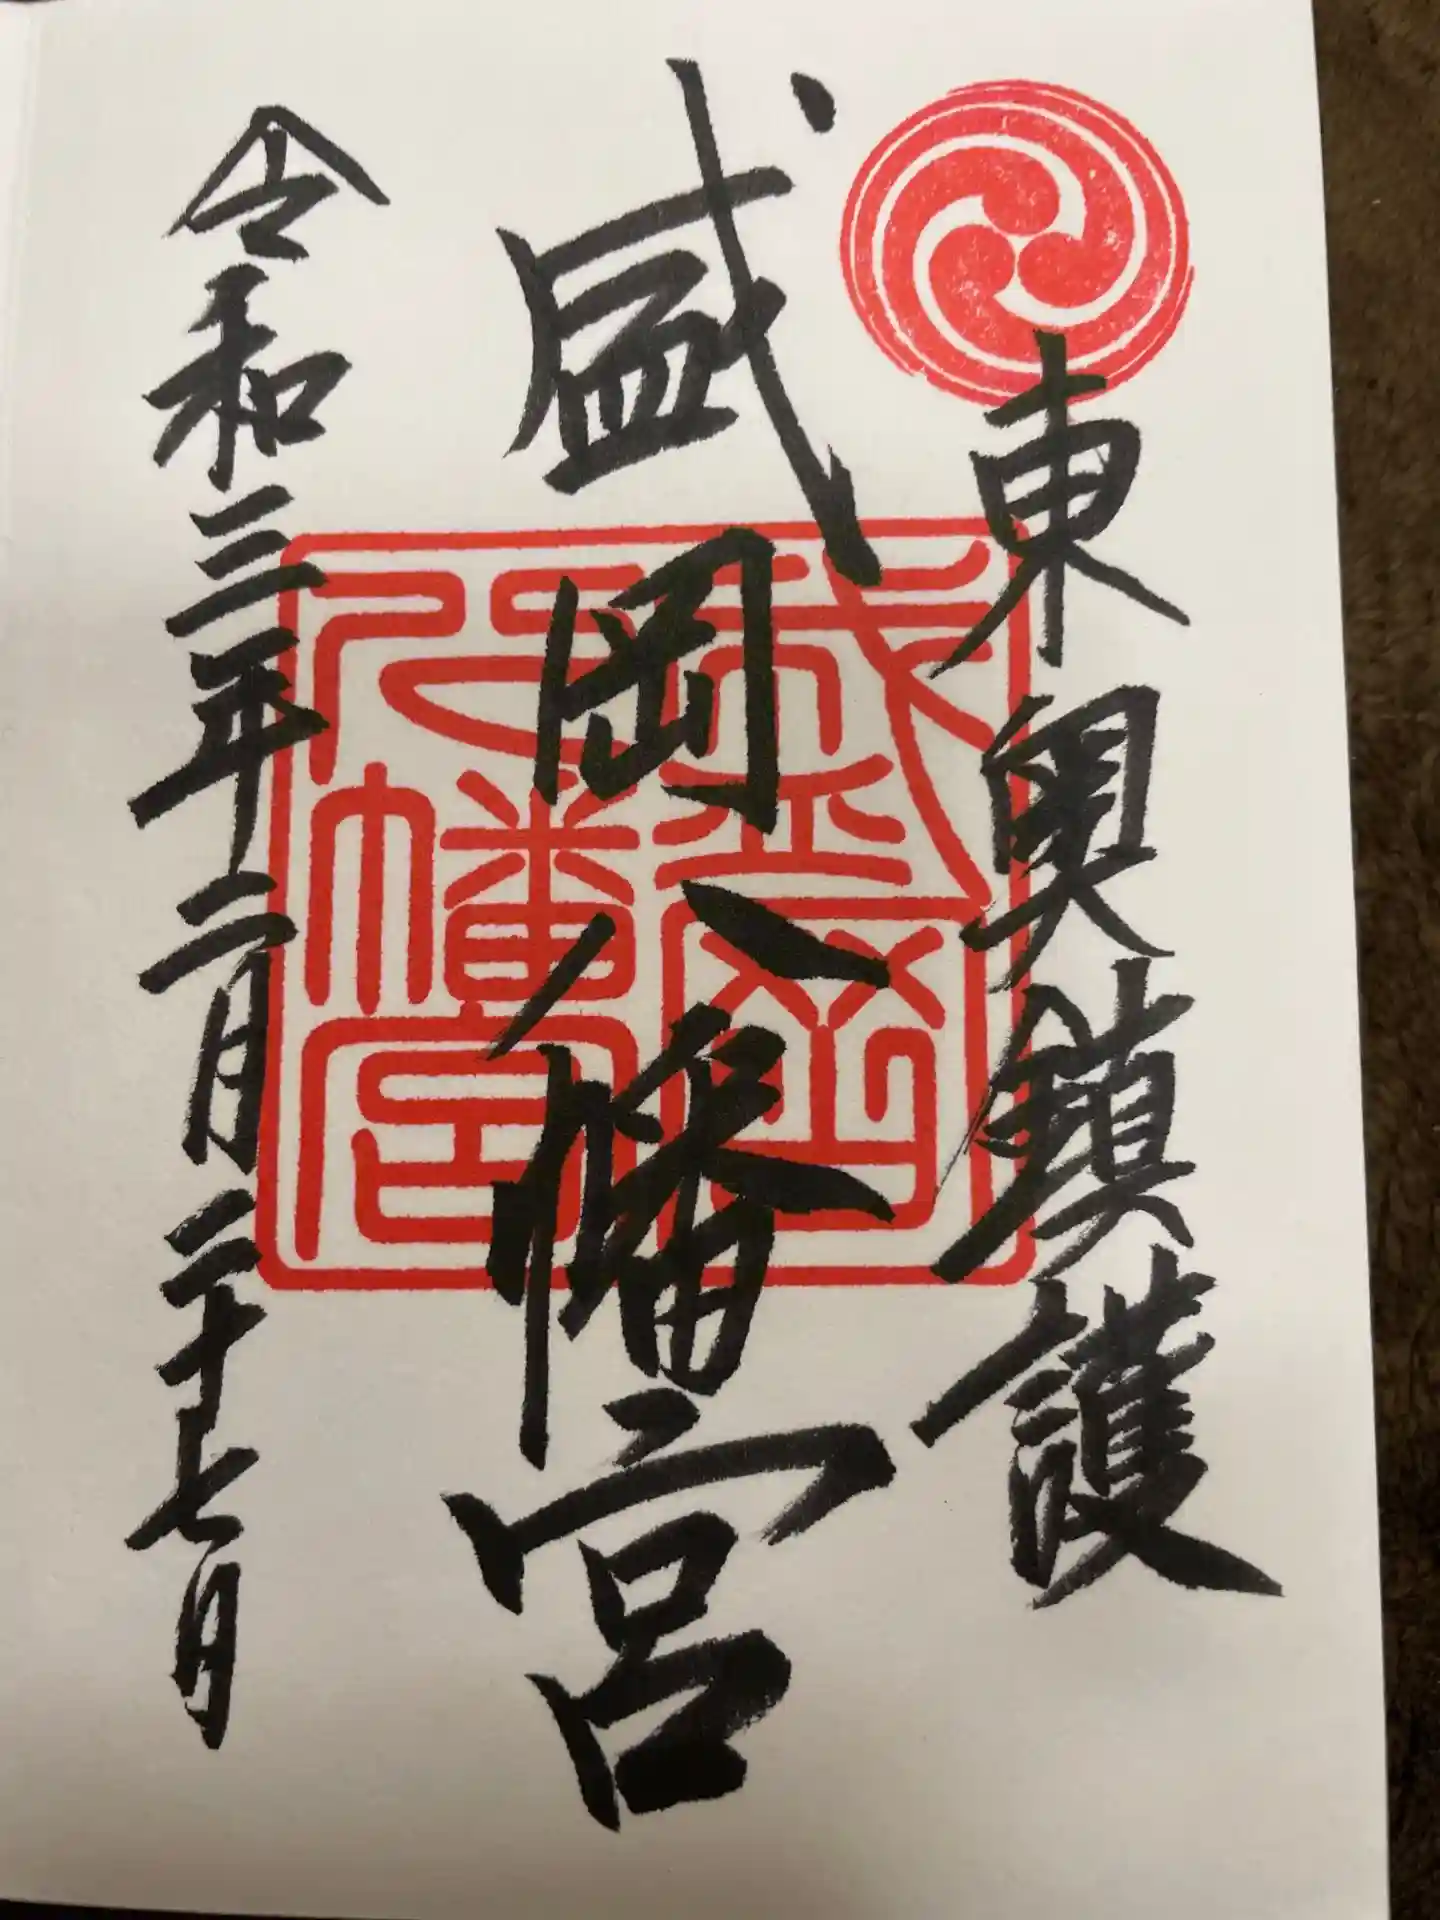 東奥鎮護
盛岡八幡宮
盛岡八幡宮
令和三年二月二十七日